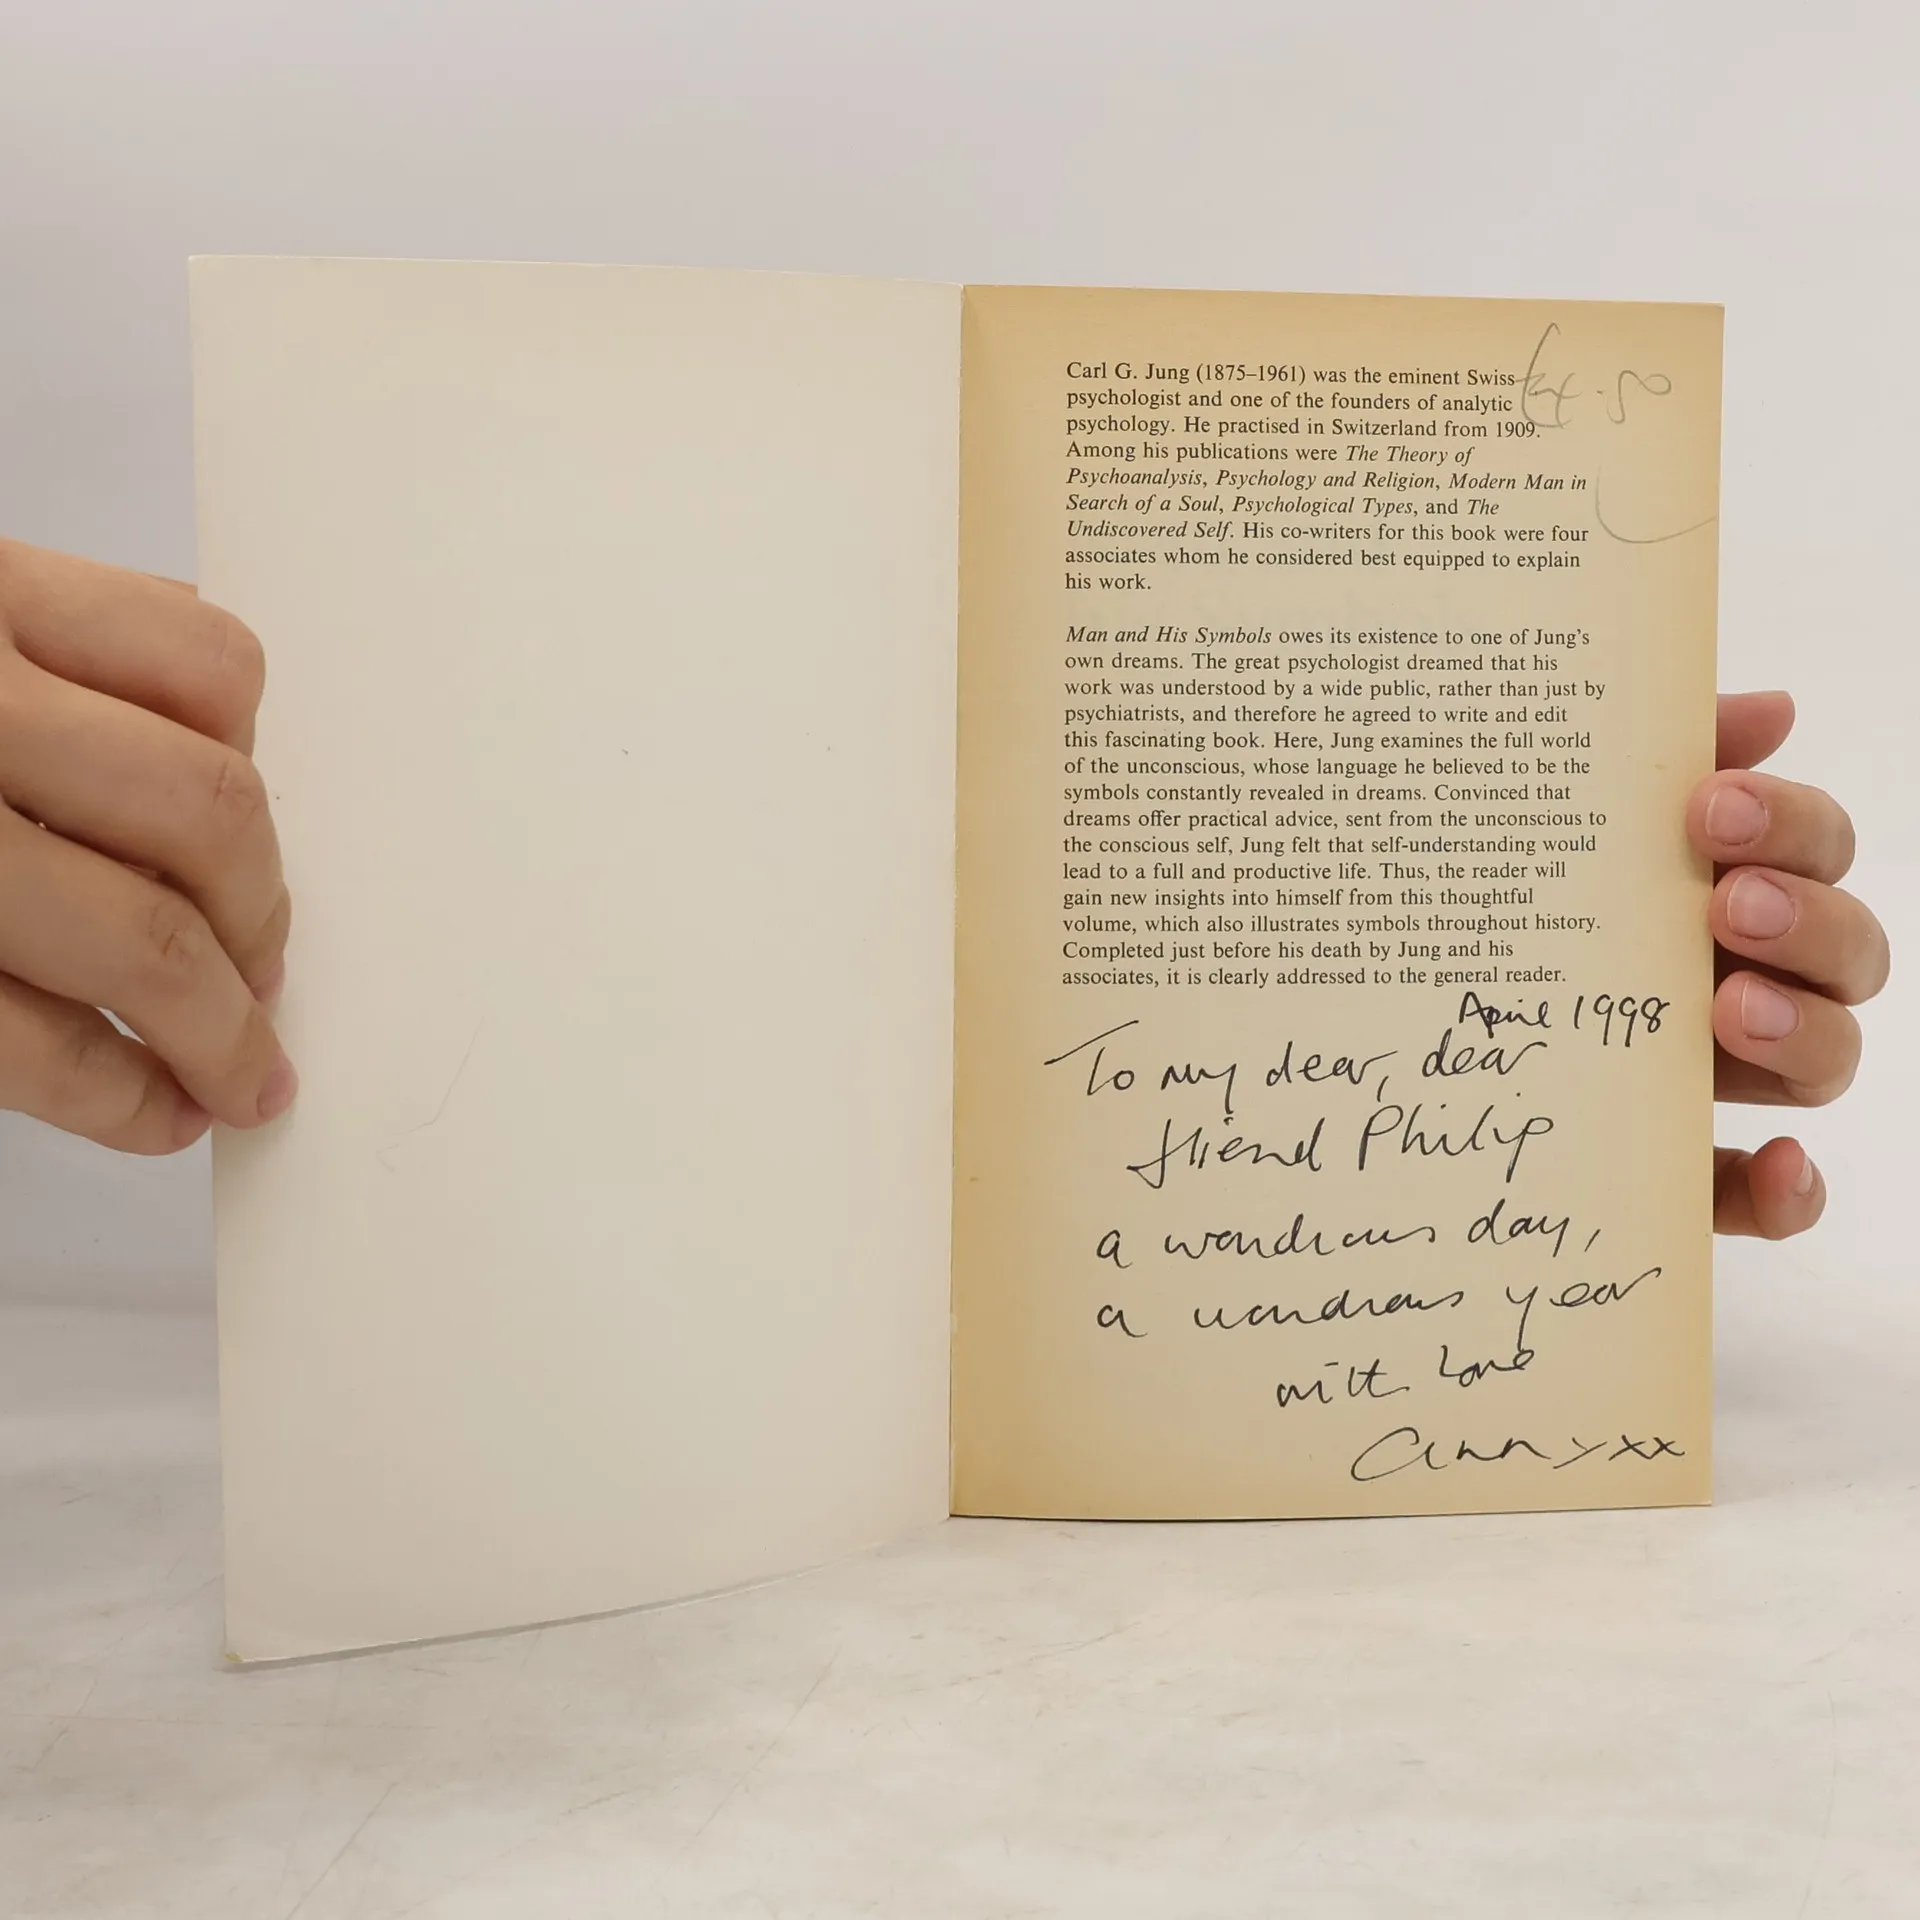 Carl G. Jung (1875–1961) was the eminent Swiss
psychologist and one of the founders of analytic
psychology. He practised in Switzerland from 1909.
Among his publications were The Theory of
Psychoanalysis, Psychology and Religion, Modern Man in
Search of a Soul, Psychological Types, and The
Undiscovered Self. His co-writers for this book were four
associates whom he considered best equipped to explain
his work.
Man and His Symbols owes its existence to one of Jung's
own dreams. The great psychologist dreamed that his
work was understood by a wide public, rather than just by
psychiatrists, and therefore he agreed to write and edit
this fascinating book. Here, Jung examines the full world
of the unconscious, whose language he believed to be the
symbols constantly revealed in dreams. Convinced that
dreams offer practical advice, sent from the unconscious to
the conscious self, Jung felt that self-understanding would
lead to a full and productive life. Thus, the reader will
gain new insights into himself from this thoughtful
volume, which also illustrates symbols throughout history.
Completed just before his death by Jung and his
associates, it is clearly addressed to the general reader.
April 1998
To my dear, dear
friend Philip
a wondrous day,
a wondrous year
with love
Ann xxx